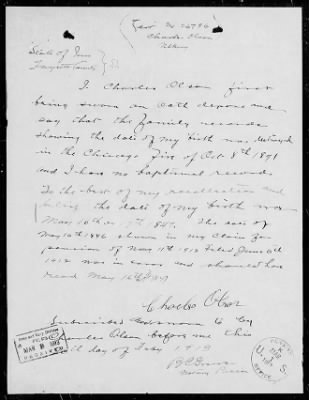 Charles Olson
State of Iowa
Fayette County
I Charles Olson first
being sworn on oath depose and
say that the family records
showing the date of my birth was destroyed
in the Chicago Fire of Oct 8th 1871
and I have no baptismal records
To the best of my recollection and
belief the date of my birth was
May 16th or 17th 1847. The date of
May 16th 1846 shown in my Claim for
pension of May 11th 1912 filed June
1912 was in error and should have
read May 16th 1847
Charles Olson
Subscribed and sworn to by
Charles Olson before me this
day of Feby 1913
Notary Public